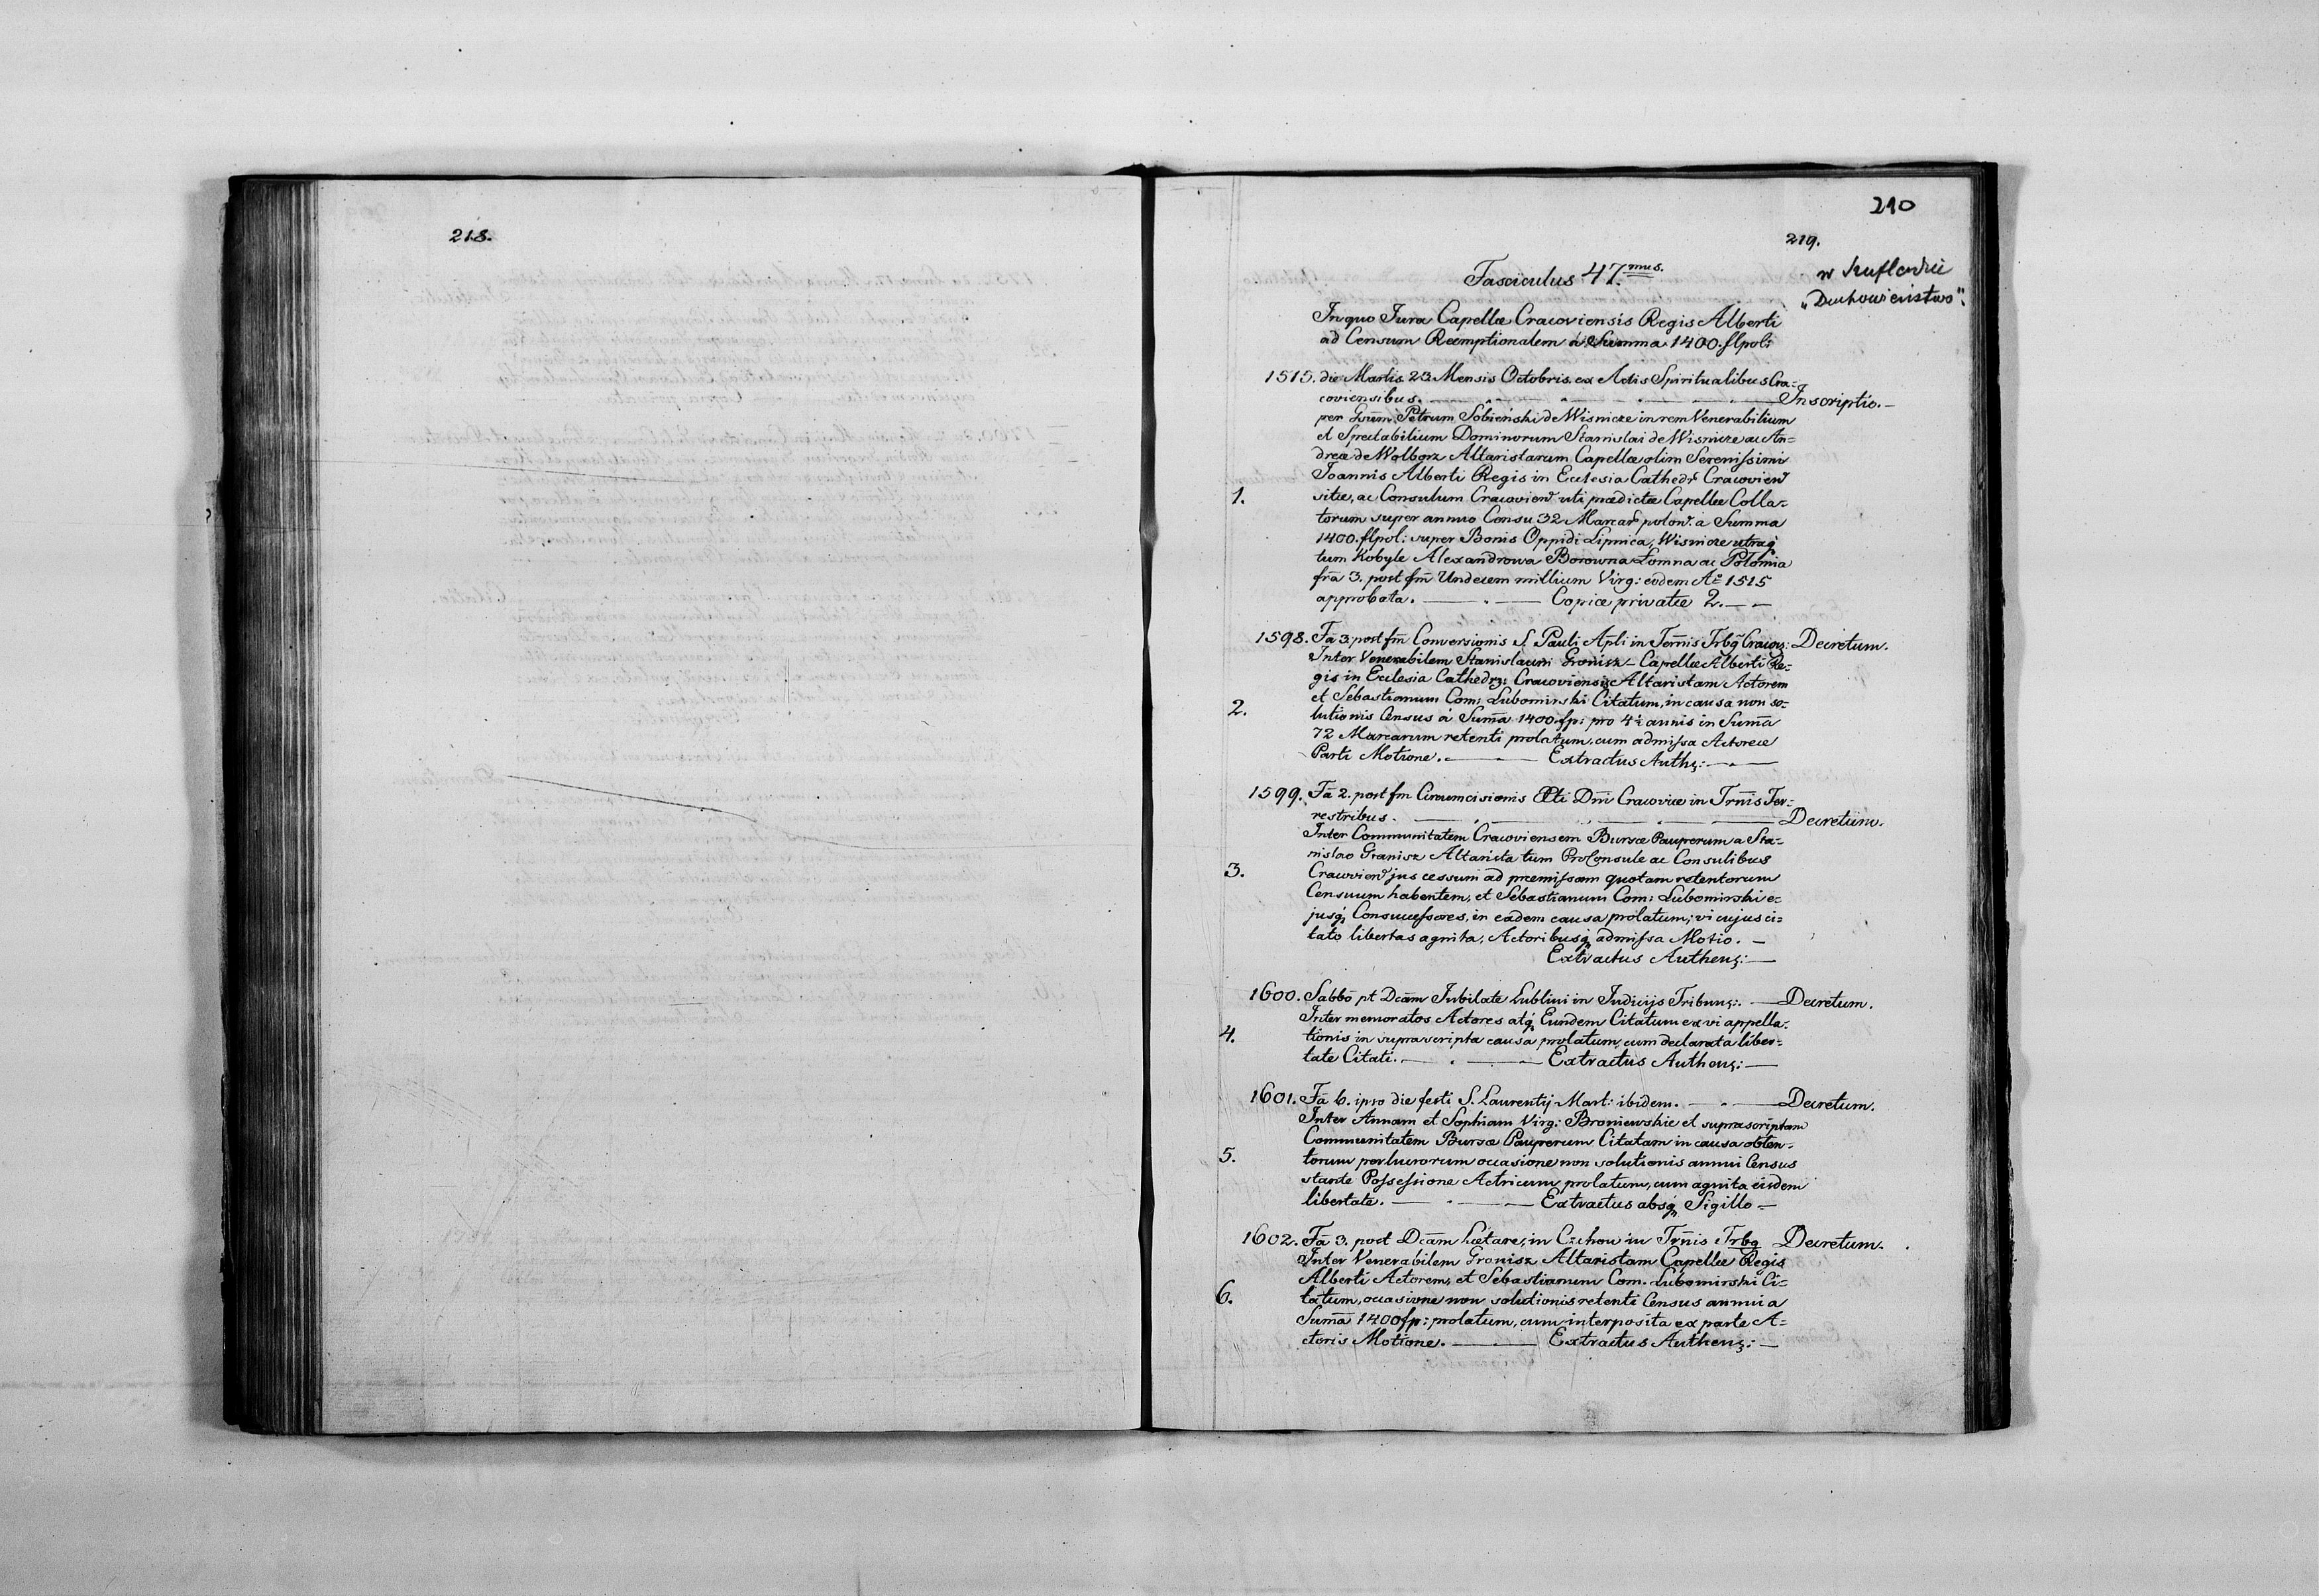 218.
210
219.
w kuflerku
"Duchowieństwo".
Fasciculus 47mus.
In quo Jura Capellæ Cracoviensis Regis Alberti
ad Censum Reemptionalem à Summa 1400. flpol:
1515. die Martis 23 Mensis Octobris ex Actis Spiritualibus Cra=
coviensibus. Inscriptio.
per Gsum Petrum Sobieński de Wisnicze in rem Venerabilium
et Spectabilium Dominorum Stanislai de Wisnicze ac An=
dreæ de Wolborz Altaristarum Capellæ olim Serenissimi
Joannis Alberti Regis in Ecclesia Cathedr Cracovien
1. sitæ, ac Consulum Cracovien uti prædictæ Capellæ Colla=
torum super annuo Censu 32 Marcar polon. a Summa
1400. flpol: super Bonis Oppidi Lipnica, Wisnicze utraq
tum Kobyle Alexandrowa Borowna Łomna ac Połomia
fra 3. post fm Undecem millium Virg: eodem Ao 1515
approbata. Copiæ privatæ 2.
1598. Fa 3. post fm Conversionis S Pauli Apli in Termis Trbg Cracov: Decretum.
Inter Venerabilem Stanislaum Gronisz Capellæ Alberti Re=
gis in Ecclesia Cathedr: Cracoviensis Altaristam Actorem
et Sebastianum Com: Lubomirski Citatum, in causa non so=
2. lutionis Census à Suma 1400 fp: pro 4 annis in Suma
72 Marcarum retenti prolatum, cum admissa Actoreæ
Parti Motione. Extractus Auth:
1599. Fa 2. post fm Circumcisionis Dni Cracoviæ in Trnis Ter=
restribus. Decretum.
Inter Communitatem Cracoviensem Bursæ Pauperum a Sta=
nislao Granisz Altarista tum ProConsule ac Consulibus
3. Cracovien jus cessum ad premissam quotam retentorum
Censuum habentem, et Sebastianum Com: Lubomirski e=
jusq Consuccessores, in eadem causa prolatum; vi cujus ci=
tato libertas agnita, Actoribusq admissa Motio.
Extractus Authen:
1600. Sabbo pt Dcam Jubilate Lublini in Judicijs Tribun: Decretum.
Inter memoratos Actores atq Eundem Citatum ex vi appella=
4. tionis in suprascripta causa prolatum, cum declarata liber=
tate Citati. Extractus Authen:
1601. Fa 6. ipso die festi S. Laurentij Mart: ibidem. Decretum.
Inter Annam et Sophiam Virg: Broniewskie et suprascriptam
Communitatem Bursæ Pauperum Citatam in causa obten=
5. torum per lucrorum occasione non solutionis annui Census
stante Possessione Actricum prolatum, cum agnita eisdem
libertate. Extractus absq Sigillo
1602. Fa 3. post Dcam Lætare, in Czchow in Trnis Trbg Decretum.
Inter Venerabilem Gronisz Altaristam Capellæ Regis
Alberti Actorem, et Sebastianum Com. Lubomirski Ci=
6. tatum, occasione non solutionis retenti Census annui a
Suma 1400 fp: prolatum, cum interposita ex parte A=
ctoris Motione. Extractus Authen: